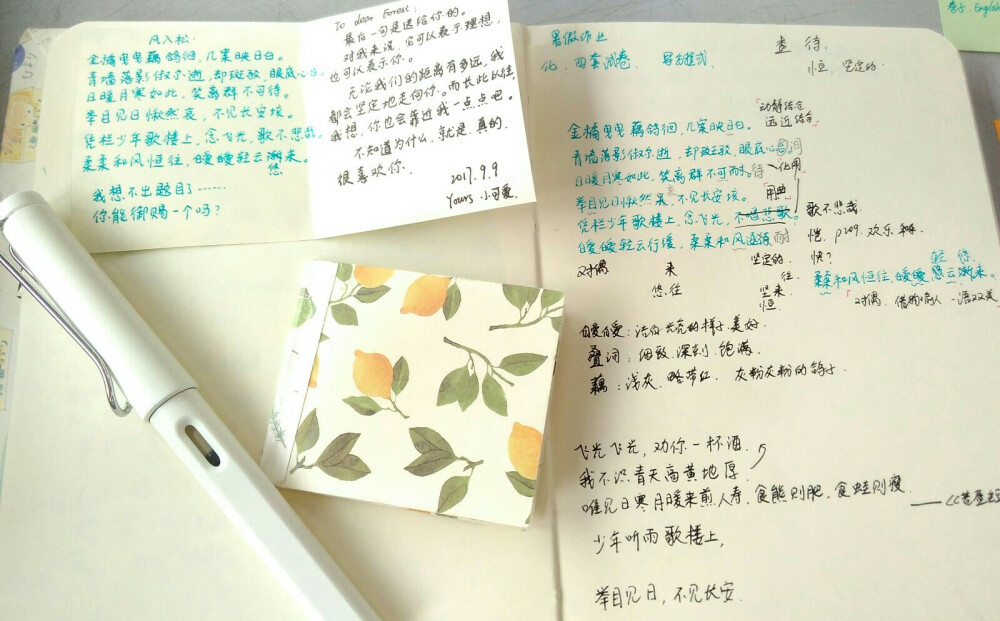 风入松.
金橘电电藕鸽徊,几案映日白。
青墙落影做尔逝,却斑驳,眼底心
日暖月寒如此,笑离群不可待。
举目见日愀然哀,不见长安埃。
凭栏少年歌楼上,念飞光,歌不悲哉。
柔柔和风恒往,暧暧轻云渐来。
悠
我想不出题目了……
你能御赐一个吗?
To dear Forest:
最后一句是送给你的。
对我来说,它可以表示理想,
也可以表示你。
无论我们的距离有多远,我
都会坚定地走向你。而长此以往,
我想,你也会靠近我一点点吧。
不知道为什么,就是,真的,
很喜欢你。
2017.9.9
Yours 小可爱
卷子. English
暑假作业
化. 四套试卷.
待.
恒. 坚定的.
动静结合
远近结合
金橘电电藕鸽徊,几案映日白。
青墙落影做尔逝,却斑驳,眼底心
日暖月寒如此,笑离群不可耐.待
化用
举目见日愀然哀,不见长安埃。
用典
凭栏少年歌楼上,念飞光,不唱悲歌。
歌不悲哉
暧暧轻云行缓,柔柔和风
耐
恺. p109. 欢乐.
快?
对偶
来
坚定的.
往.
悠往
坚来
恒
柔柔和风恒往,暧暧
云渐来。
对偶. 借物喻人 一语双关
暧暧:洁白光亮的样子.美好.
叠词:细致.深刻.饱满.
藕:浅灰.略带红. 灰粉灰粉的鸽子.
飞光飞光,劝你一杯酒.
我不识青天高黄地厚.
唯见日寒月暖来煎人寿.食熊则肥,食蛙则瘦.
少年听雨歌楼上,
举目见日,不见长安.